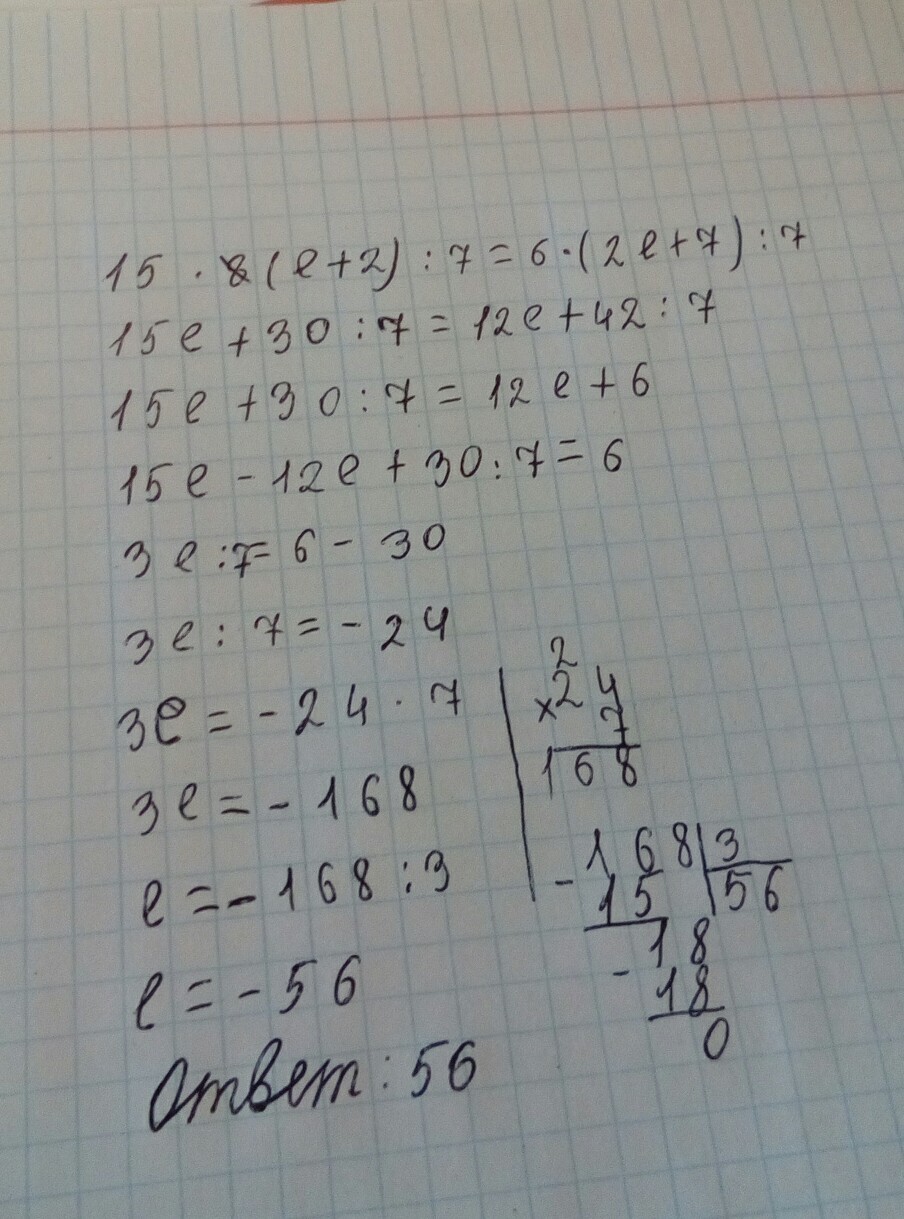 15 · (e+2) : 7 = 6 · (2e+7) : 7
15e + 30 : 7 = 12e + 42 : 7
15e + 30 : 7 = 12e + 6
15e - 12e + 30 : 7 = 6
3e : 7 = 6 - 30
3e : 7 = - 24
3e = - 24 · 7
3e = - 168
e = - 168 : 3
e = - 56
Ответ: 56
2
× 24
7
168
- 168 | 3
15 | 56
- 18
18
0